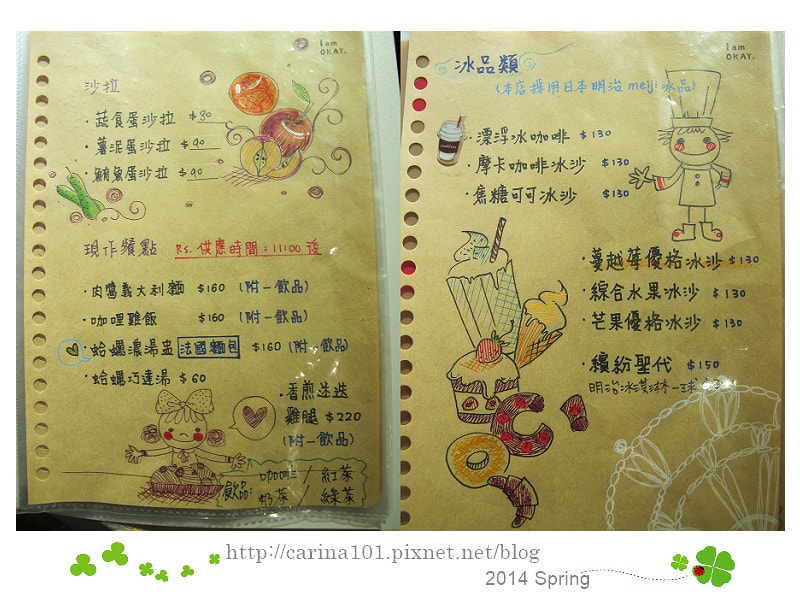 I am
OKAY.
沙拉
・蔬食蛋沙拉 $80
・薯泥蛋沙拉 $90
・鮪魚蛋沙拉 $90
現作餐點 P.S. 供應時間:11:00後
・肉醬義大利麵 $160 (附一飲品)
・咖哩雞飯 $160 (附一飲品)
・蛤蠣濃湯盅 法國麵包 $160 (附一飲品)
・蛤蠣巧達湯 $60
・香煎迷迭
雞腿 $220
(附一飲品)
飲品: 咖啡 / 紅茶
奶茶 / 綠茶
I am
OKAY.
冰品類
(本店採用日本明治meiji冰品)
coffee
・漂浮冰咖啡 $130
・摩卡咖啡冰沙 $130
・焦糖可可冰沙 $130
・蔓越莓優格冰沙 $130
・綜合水果冰沙 $130
・芒果優格冰沙 $130
・繽紛聖代 $150
明治冰淇淋一球
http://carina101.pixnet.net/blog
2014 Spring